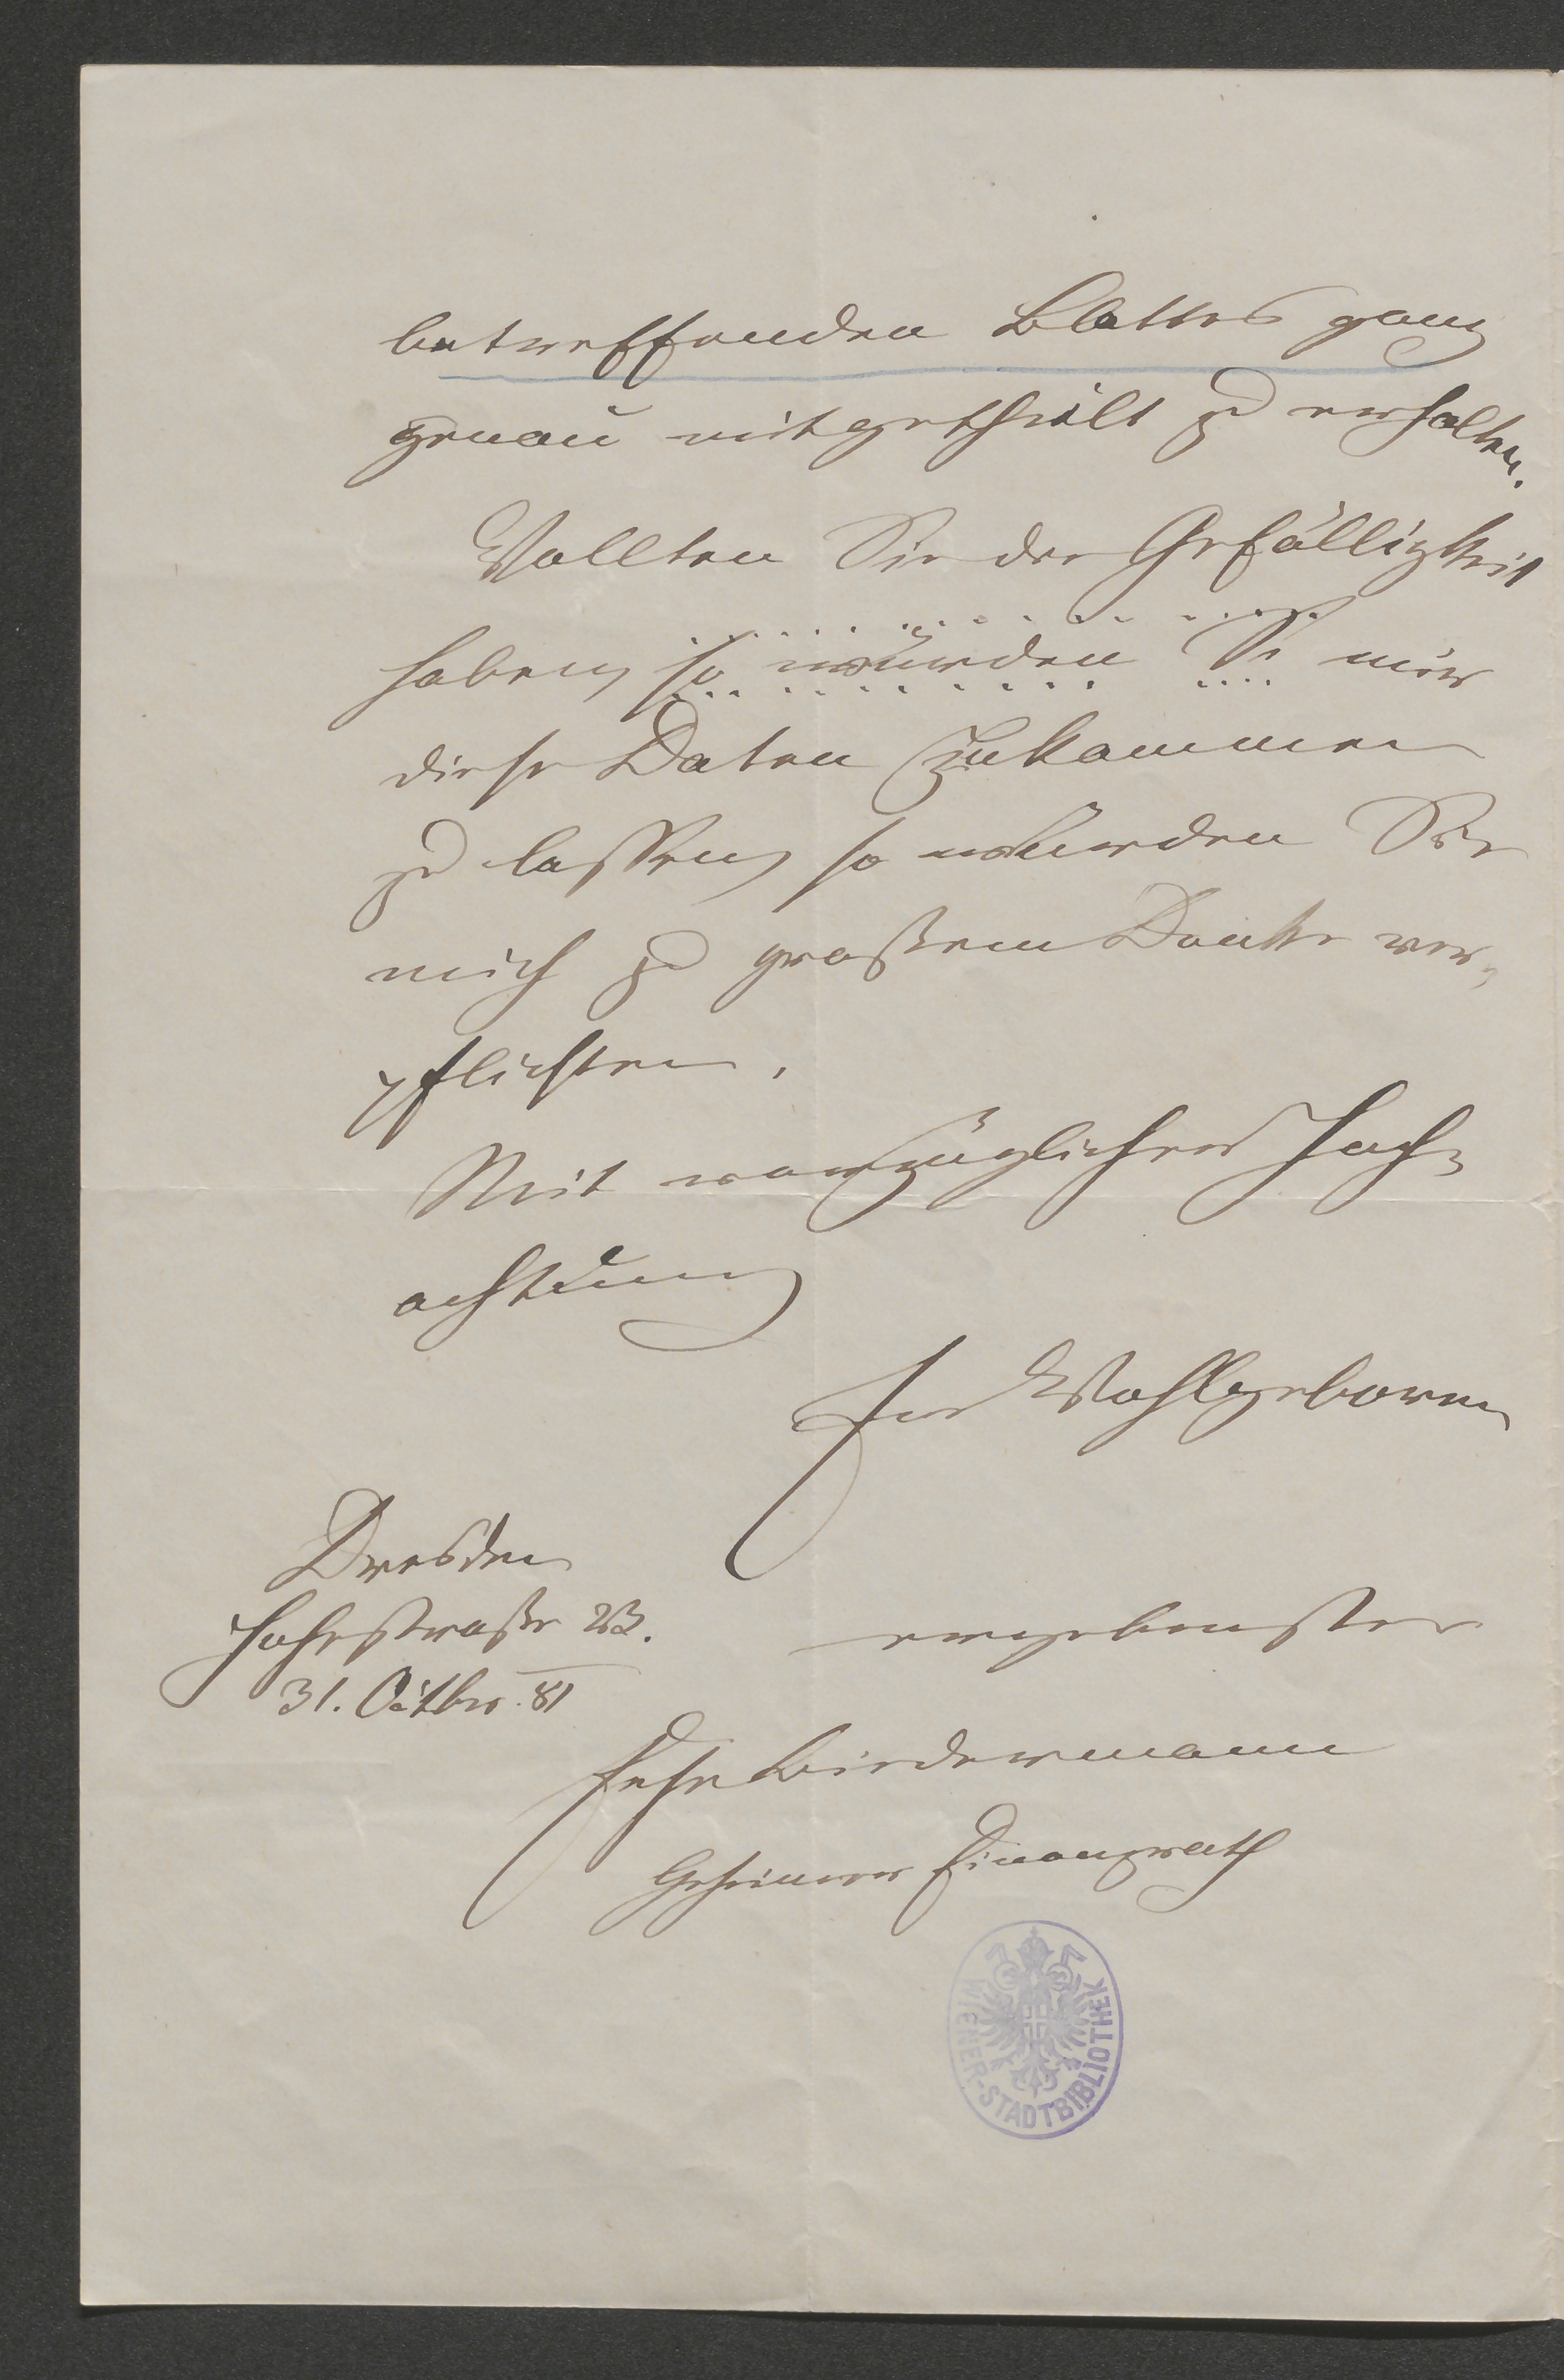 betreffenden Blattes ganz
genau mitgetheilt zu erhalten.
Wollten Sie die Gefälligkeit
haben, so würden Sie mir
diese Daten zukommen
zu lassen, so würden Sie
mich zu großem Danke ver-
pflichten.
Mit vorzüglicher Hoch-
achtung
Ew Wohlgeboren
Dresden
Hohestraße 23.
31. Octbr. 81
ergebenster
Frhr Biedermann
Geheimer Finanzrath
WIENER-STADTBIBLIOTHEK